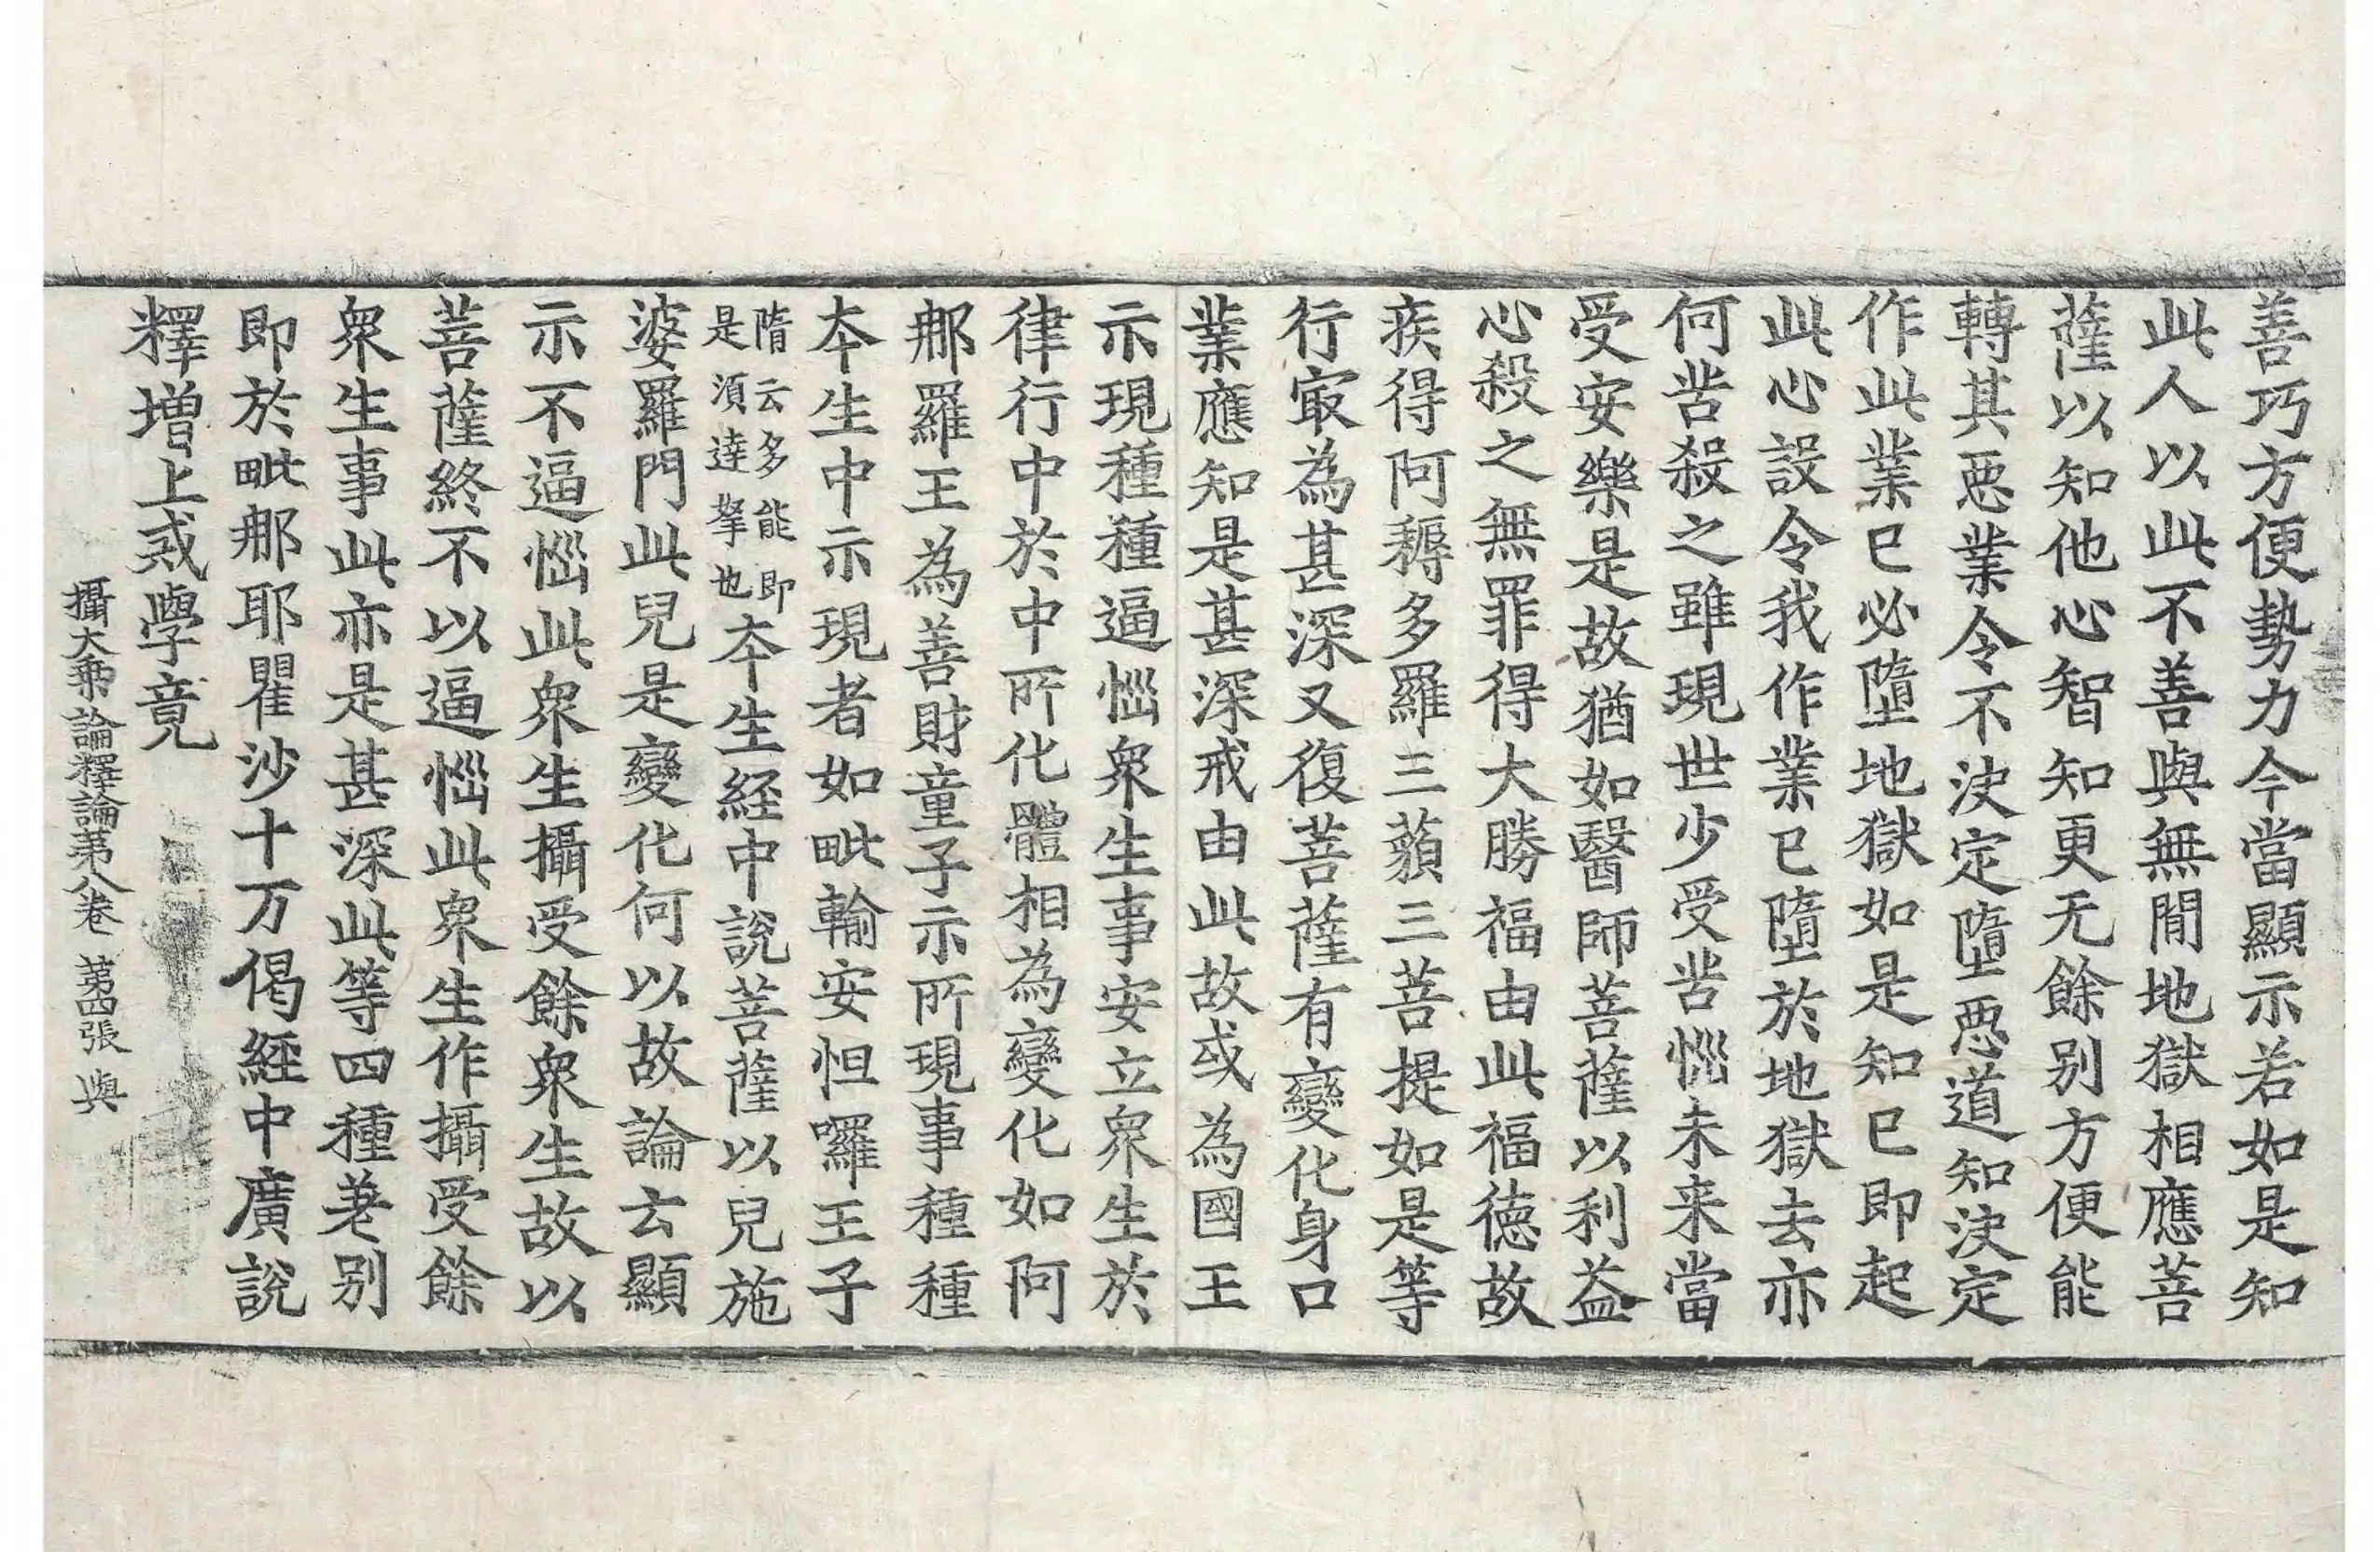 善巧方便勢力今當顯示若如是知
此人以此不善與無閒地獄相應菩
薩以知他心智知更无餘别方便能
轉其惡業令不決定墮惡道知決定
作此業已必墮地獄如是知已即起
此心設令我作業已墮於地獄去亦
何苦殺之雖現世少受苦惱未来當
受安樂是故猶如醫師菩薩以利益
心殺之無罪得大勝福由此福德故
疾得阿耨多羅三藐三菩提如是等
行㝡為甚深又復菩薩有變化身口
業應知是甚深戒由此故或為國王
示現種種逼惱衆生事安立衆生於
律行中於中所化體相為變化如阿
那羅王為善財童子示所現事種種
本生中示現者如毗輸安怛囉王子
隋云多能即
是須達拏也本生經中說菩薩以兒施
婆羅門此兒是變化何以故論云顯
示不逼惱此衆生攝受餘衆生故以
菩薩終不以逼惱此衆生作攝受餘
衆生事此亦是甚深此等四種差别
即於毗那耶瞿沙十万偈經中廣說
釋增上戒學竟
攝大乗論釋論第八卷 第四張 與